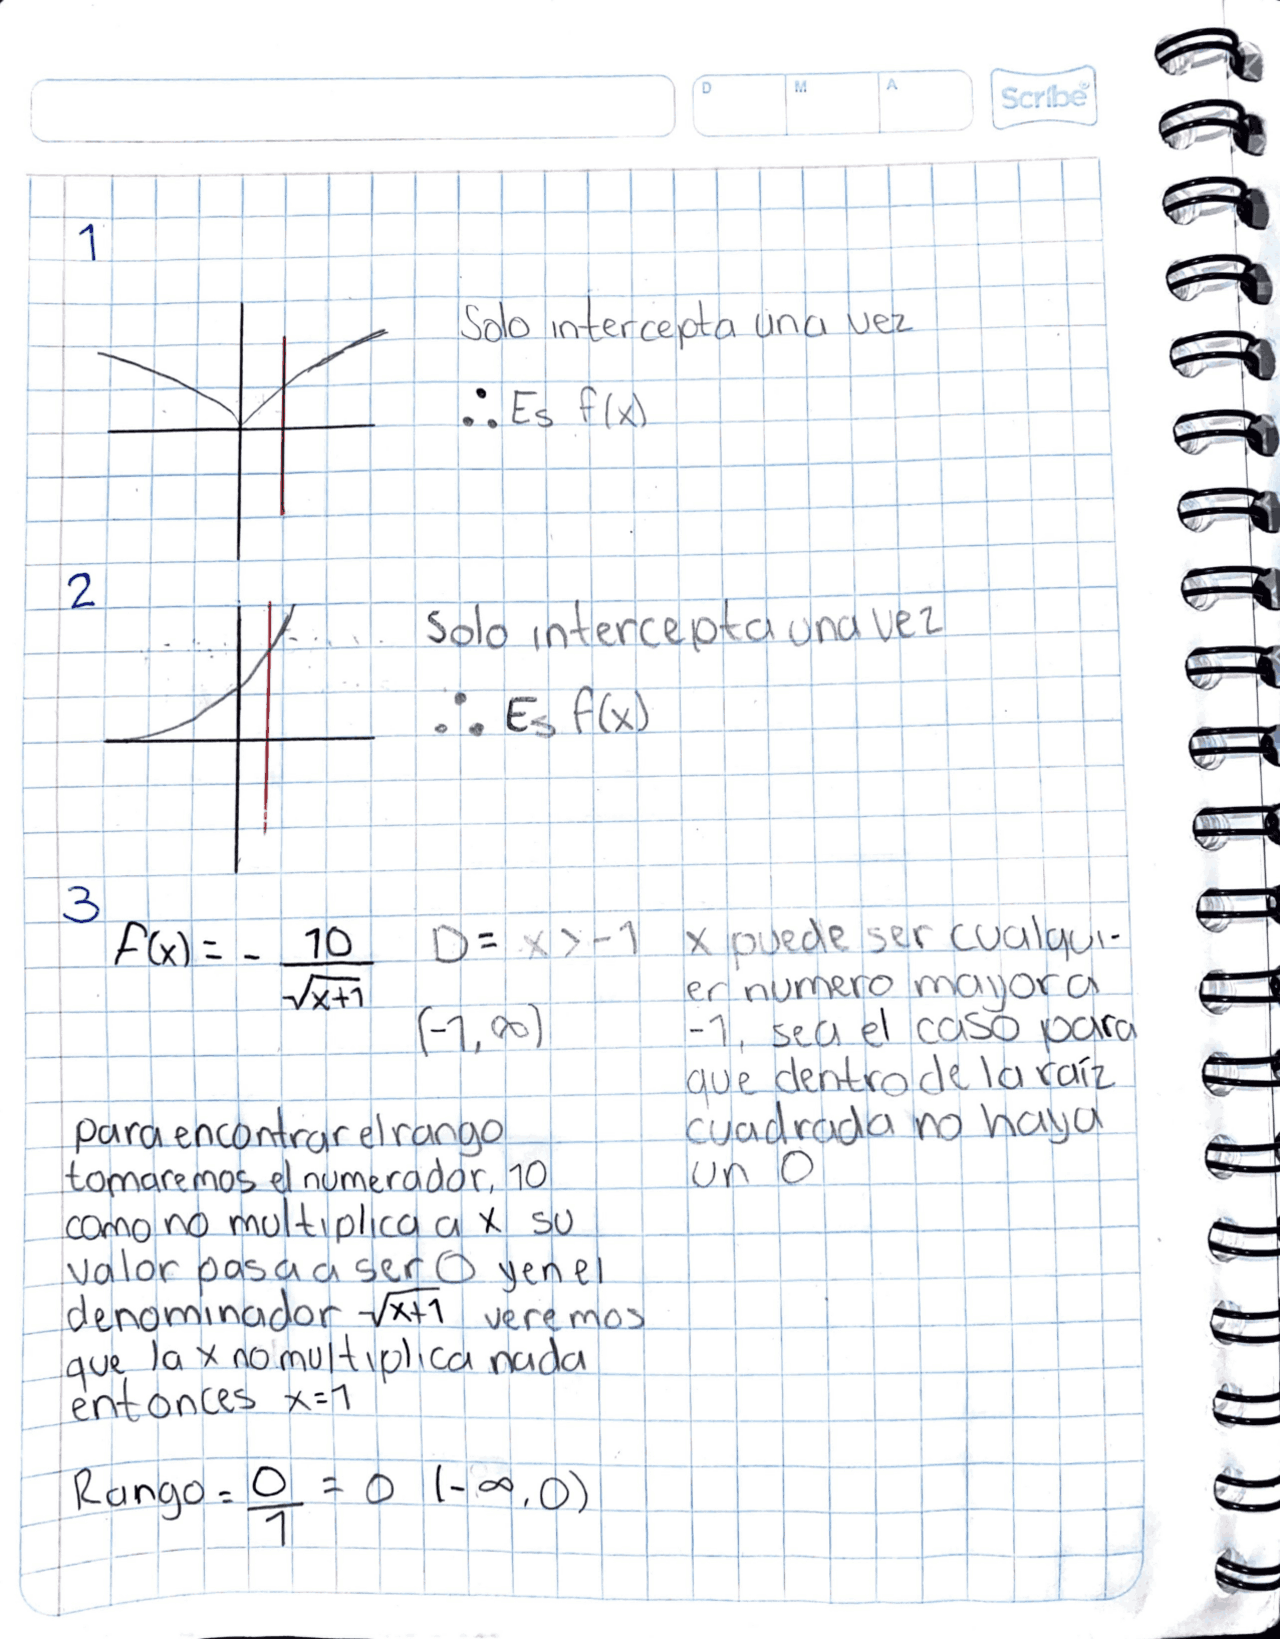 D M A Scribe
1
Solo intercepta una vez
∴ Es f(x)
2
Solo intercepta una vez
∴ Es f(x)
3
f(x) = - 10/√x+1 D = x > -1
(-1, ∞)
x puede ser cualqui-
er numero mayor a
-1, sea el caso para
que dentro de la raíz
cuadrada no haya
un 0
para encontrar el rango
tomaremos el numerador, 10
como no multiplica a x su
valor pasa a ser 0 y en el
denominador √x+1 veremos
que la x no multiplica nada
entonces x=1
Rango = 0/1 = 0 (-∞, 0)